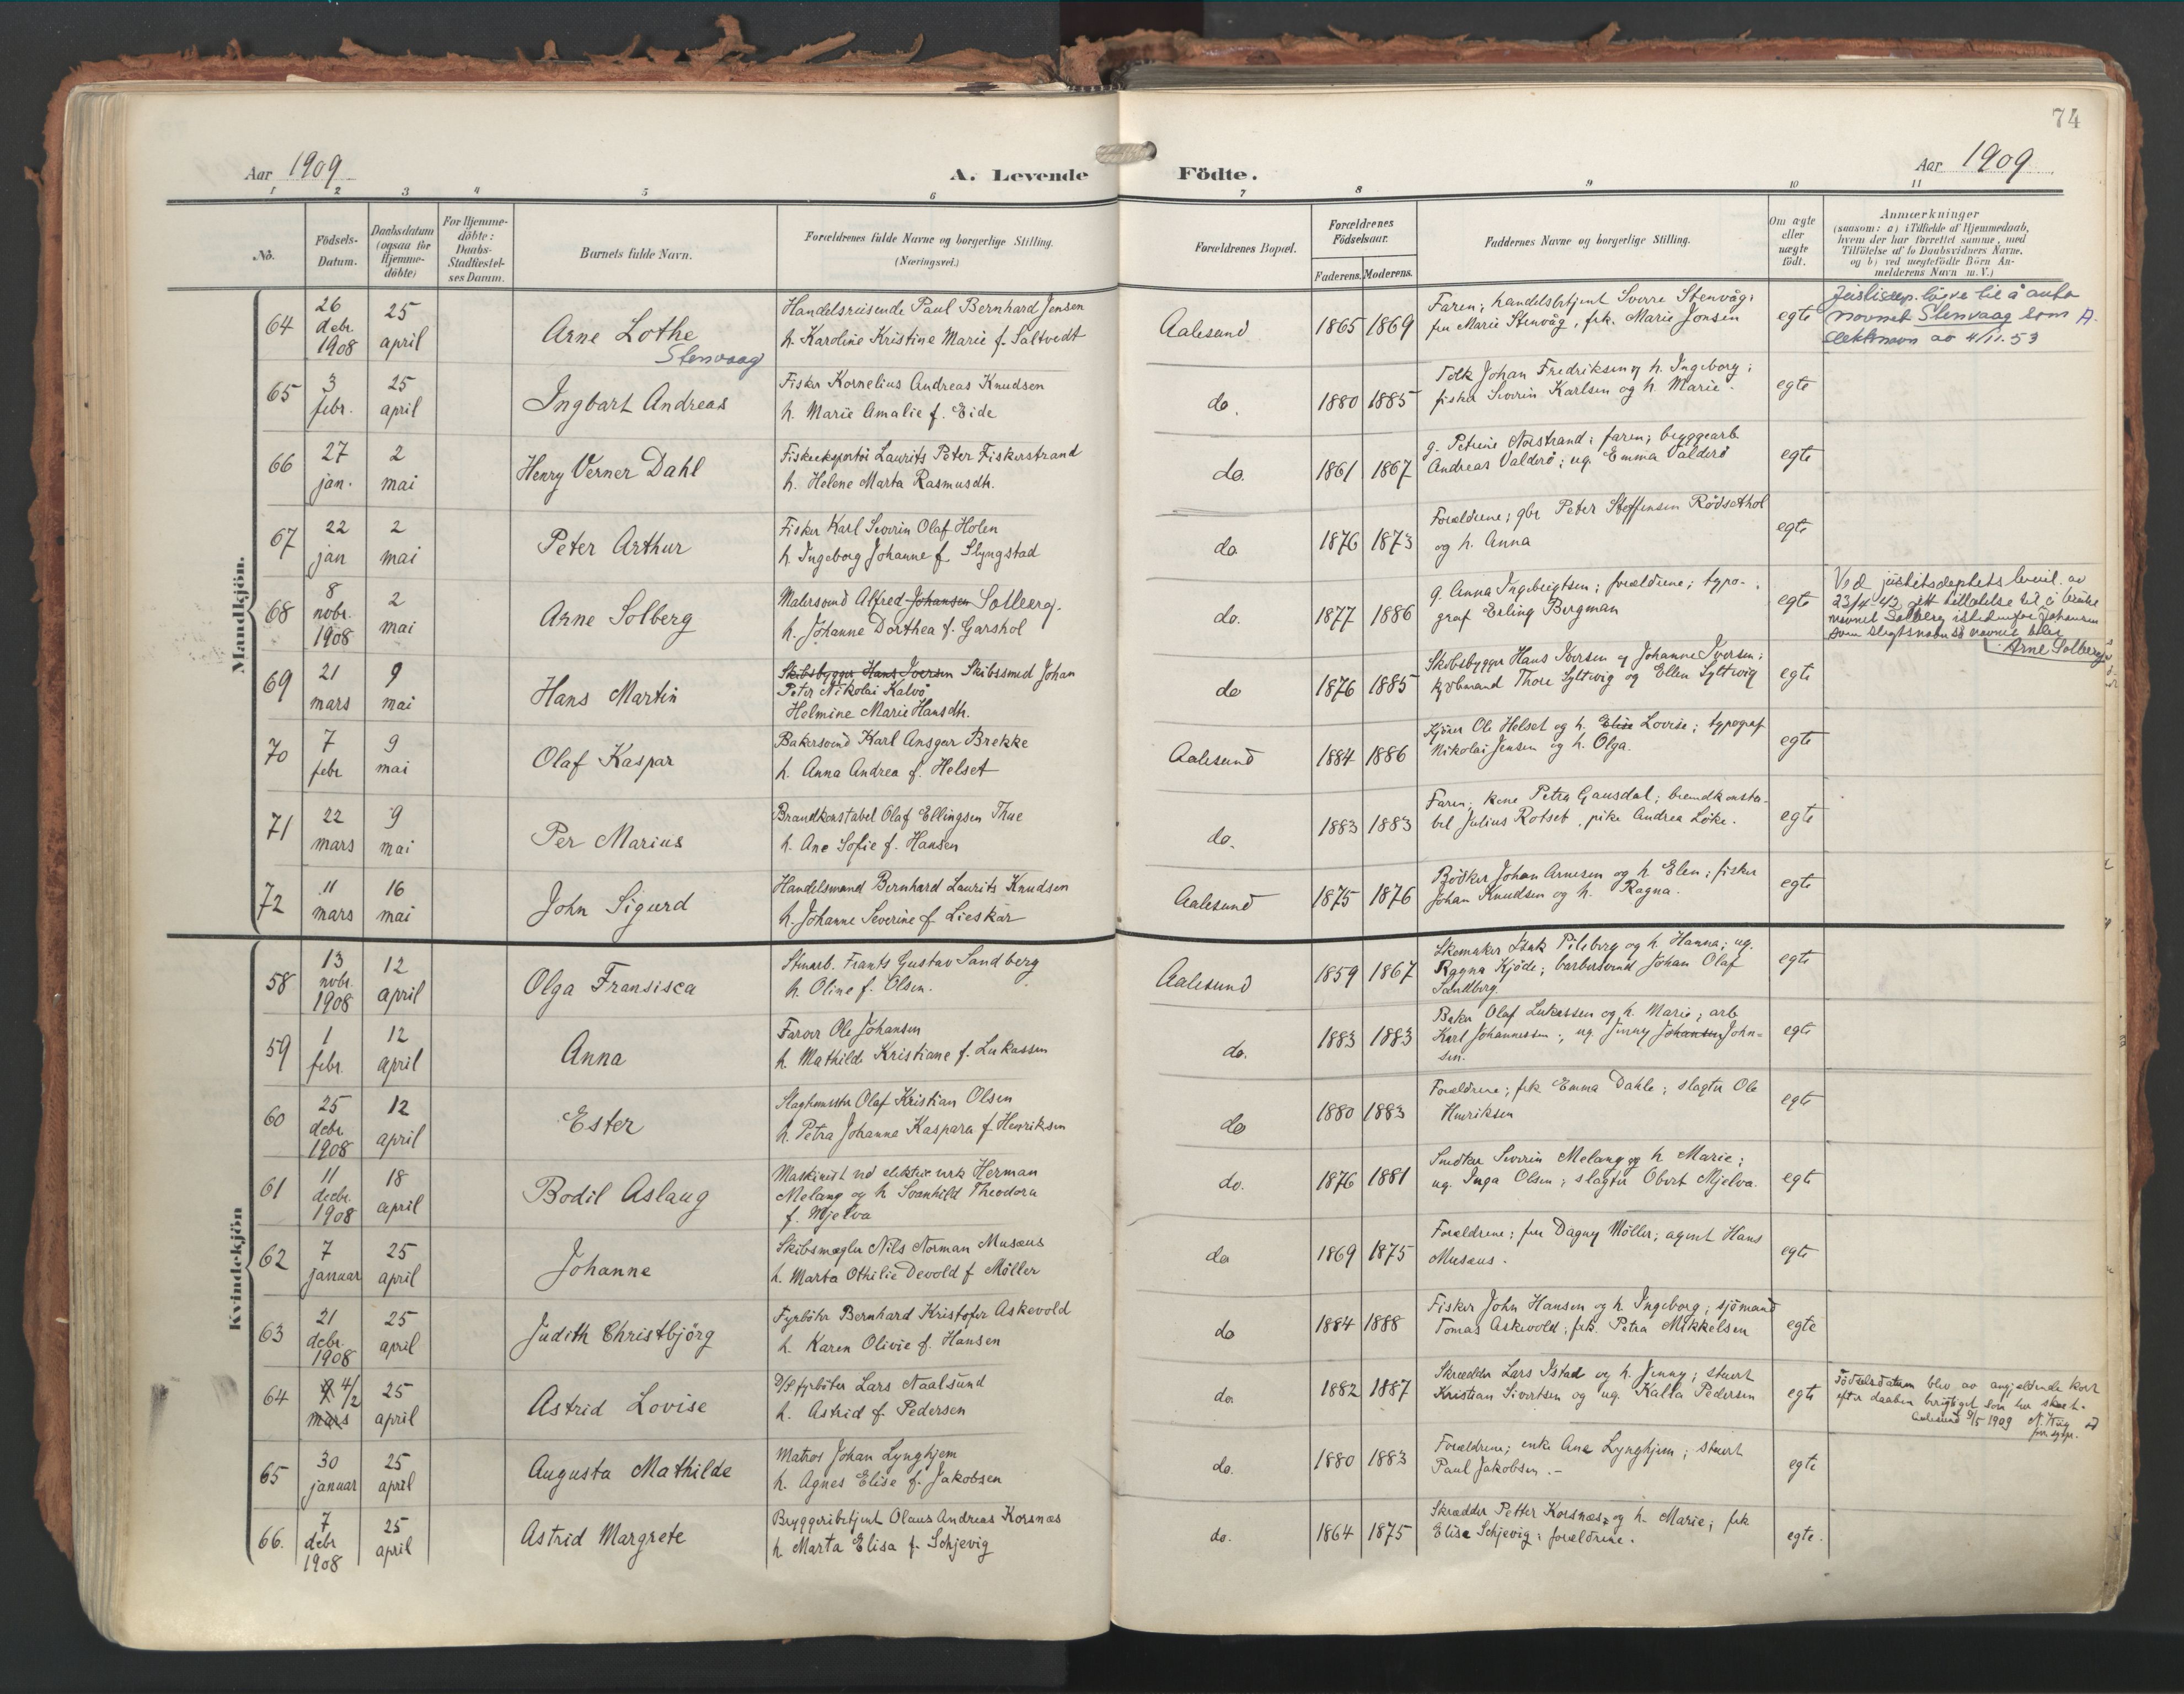 74
Aar 1909
A. Levende Födte.
Aar 1909
1 2 3 4 5 6 7 8 9 10 11
No.
Födsels-
Datum.
Daabsdatum
(ogsaa for
Hjemme-
döbte)
For Hjemme-
döbte:
Daabs-
Stadfæstel-
ses Datum.
Barnets fulde Navn.
Forældrenes fulde Navne og borgerlige Stilling.
(Næringsvei.)
Forældrenes Bopæl.
Forældrenes
Födselsaar.
Faderens. Moderens.
Faddernes Navne og borgerlige Stilling.
Om ægte
eller
uægte
födt.
Anmærkninger
(saasom: a) i Tilfælde af Hjemmedaab,
hvem der har forrettet samme, med
Tilföielse af to Daabsvidners Navne.
og b) ved uægtefödte Börn An-
melderens Navn m. V.)
Mandkjön.
64
26
debr.
1908
25
april
Arne Lothe
Stenvaag
Handelsreisende Paul Bernhard Jensen
h. Karoline Kristine Marie f. Saltvedt
Aalesund
1865 1869
Faren; handelsbetjent Sverre Stenvåg;
fru Marie Stenvåg, frk. Marie Jonsen
egte
navnet Stenvaag som
av 4/11.53
65
3
febr.
25
april
Ingbart Andreas
Fisker Kornelius Andreas Knudsen
h. Marie Amalie f. Eide
do.
1880 1885
Tolk Johan Fredriksen og h. Ingeborg;
fisker Severin Karlsen og h. Marie.
egte
66
27
jan.
2
mai
Henry Verner Dahl
Fiskeeksportör Laurits Peter Fiskerstrand
h. Helene Marta Rasmusdh.
do.
1861 1867
g. Petrine Norstrand; faren; byggearb.
Andreas Valderö; ug. Emma Valderö
egte
67
22
jan
2
mai
Peter Arthur
Fisker Karl Severin Olaf Holen
h. Ingeborg Johanne f. Slyngstad
do
1876 1873
Forældrene; gbr Peter Steffensen Rödsethol
og h. Anna
egte
68
8
nobr.
1908
2
mai
Arne Solberg
Malersvend Alfred Johansen Solberg.
h. Johanne Dorthea f. Garshol
do.
1877 1886
g. Anna Ingebrigtsen; forældrene; typo-
graf Erling Bergman
egte
Ved justitsdeptets bevil. av
23/4-42 gitt tillatelse til å bruke
navnet Solberg istedenfor Johansen
som slegtsnavn så navnet blir
Arne Solberg
69
21
mars
9
mai
Hans Martin
Skibsbygger Hans Iversen Skibssmed Johan
Peter Nikolai Kalvö
Helmine Marie Hansdh.
do
1876 1885
Skibsbygger Hans Iversen og Johanne Iversen;
kjöbmand Thore Syltevig og Ellen Syltevig
egte
70
7
febr
9
mai
Olaf Kaspar
Bakersvend Karl Ansgar Brekke
h. Anna Andrea f. Helset
Aalesund
1884 1886
Ole Helset og h. Elise Lovise; typograf
Nikolai Jensen og h. Olga.
egte
71
22
mars
9
mai
Per Marius
Brandkonstabel Olaf Ellingsen Thue
h. Ane Sofie f. Hansen
do.
1883 1883
Faren; kone Petra Gausdal; brandkonsta-
bel Julius Rotset, pike Andrea Löke.
egte
72
11
mars
16
mai
John Sigurd
Handelsmand Bernhard Laurits Knudsen
h. Johanne Severine f. Lieskår
Aalesund
1875 1876
Bödker Johan Arnesen og h. Elen; fisker
Johan Knudsen og h. Ragna.
egte
Kvindekjön
58
13
nobr.
1908
12
april
Olga Fransisca
Stuearb. Frants Gustav Sandberg
h. Oline f. Olsen.
Aalesund
1859 1867
Skomaker Pileberg og h. Hanna; ug.
Ragna Kjöde; barbersvend Johan Olaf
Sandberg.
egte
59
1
febr.
12
april
Anna
Farver Ole Johansen
h. Mathilde Kristiane f. Lukassen
do.
1883 1883
Baker Olaf Lukassen og h. Marie; arb
Karl Johannessen; ug. Jenny Johansen John-
sen.
egte
60
25
debr.
1908
12
april
Ester
Slagtermester Olaf Kristian Olsen
h. Petra Johanne Kaspara f. Henriksen
do
1880 1883
Forældrene; frk Emma Dahle; slagter Ole
Henriksen
egte
61
11
decbr.
1908
18
april
Bodil Aslaug
Maskinist ved elektric verk Herman
Melang og h Svanhild Theodora
f. Mjelva
do.
1876 1881
Severin Melang og h Marie;
ug. Inga Olsen; slagter Obert Mjelva.
egte
62
7
januar
25
april
Johanne
Skibsmægler Nils Norman Musæus
h. Marta Othilie Devold f Möller
do
1869 1875
Forældrene; fru Dagny Möller; agent Hans
Musæus.
egte
63
21
debr.
1908
25
april
Judith Christbjörg
Fyrböter Bernhard Kristofer Askevold
h. Karen Olivie f. Hansen
do
1884 1888
Fisker John Hansen og h. Ingeborg; sjömand
Tomas Askevold; frk. Petra Mikkelsen
egte
64
4/2
mars
25
april
Astrid Lovise
D/S fyrböter Lars Naalsund
h. Astrid f. Pedersen
do.
1882 1887
Skrædder Lars Istad og h. Jenny; stuert
Kristian Sivertsen og ug. Kalla Pedersen
egte
Födselsdatum blev av angjeldende kort
efter daaben berigtiget som her sket.
Aalesund 9/5 1909
65
30
januar
25
april
Augusta Mathilde
Matros Johan Lynghjem
h. Agnes Elise f. Jakobsen
do.
1880 1883
Forældrene; enke Ane Lynghjem; stuert
Paul Jakobsen.-
egte
66.
7
debr
1908
25
april
Astrid Margrete
Bryggeribetjent Olaus Andreas Korsnæs
h Marta Elisa f. Schjevig
do.
1864 1875
Skrædder Petter Korsnæs og h. Marie; frk
Elise Schjevig; forældrene.
egte.